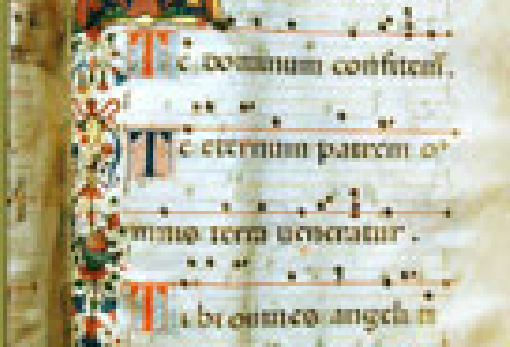 Te dominum confitem̃.
Te eternum patrem o
mnis terra ueneratur.
Tibi omnes angeli